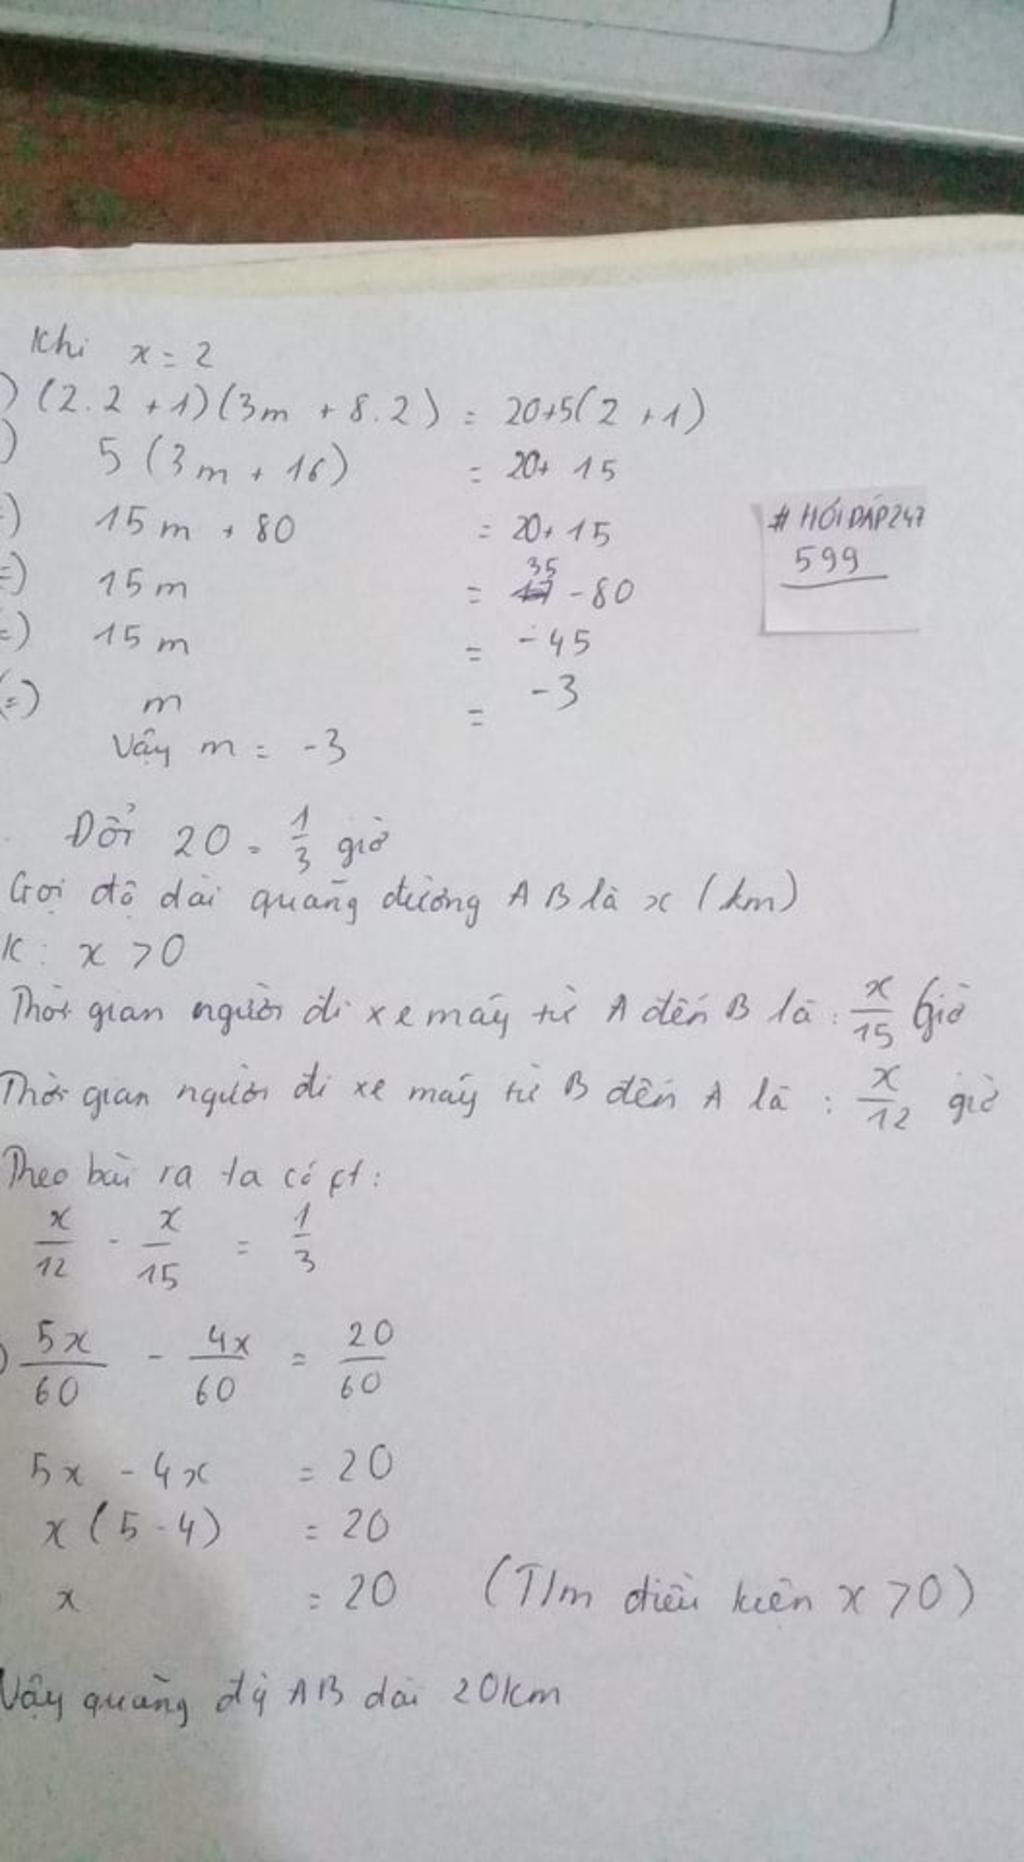 Khi x = 2
) (2.2 + 1)(3m + 8.2) = 20+5(2 + 1)
) 5 (3m + 16) = 20+ 15
=) 15m + 80 = 20+ 15
=) 15m = 35 - 80
=) 15m = -45
(=) m = -3
Vậy m = -3
# HỎIĐÁP247
599
Đổi 20 = 1/3 giờ
Gọi độ dài quãng đường AB là x (km)
K: x > 0
Thời gian người đi xe máy từ A đến B là : x/15 Giờ
Thời gian người đi xe máy từ B đến A là : x/12 giờ
Theo bài ra ta có pt:
x/12 - x/15 = 1/3
) 5x/60 - 4x/60 = 20/60
5x - 4x = 20
x(5-4) = 20
x = 20 (T/m điều kiện x > 0)
Vậy quãng đg AB dài 20km